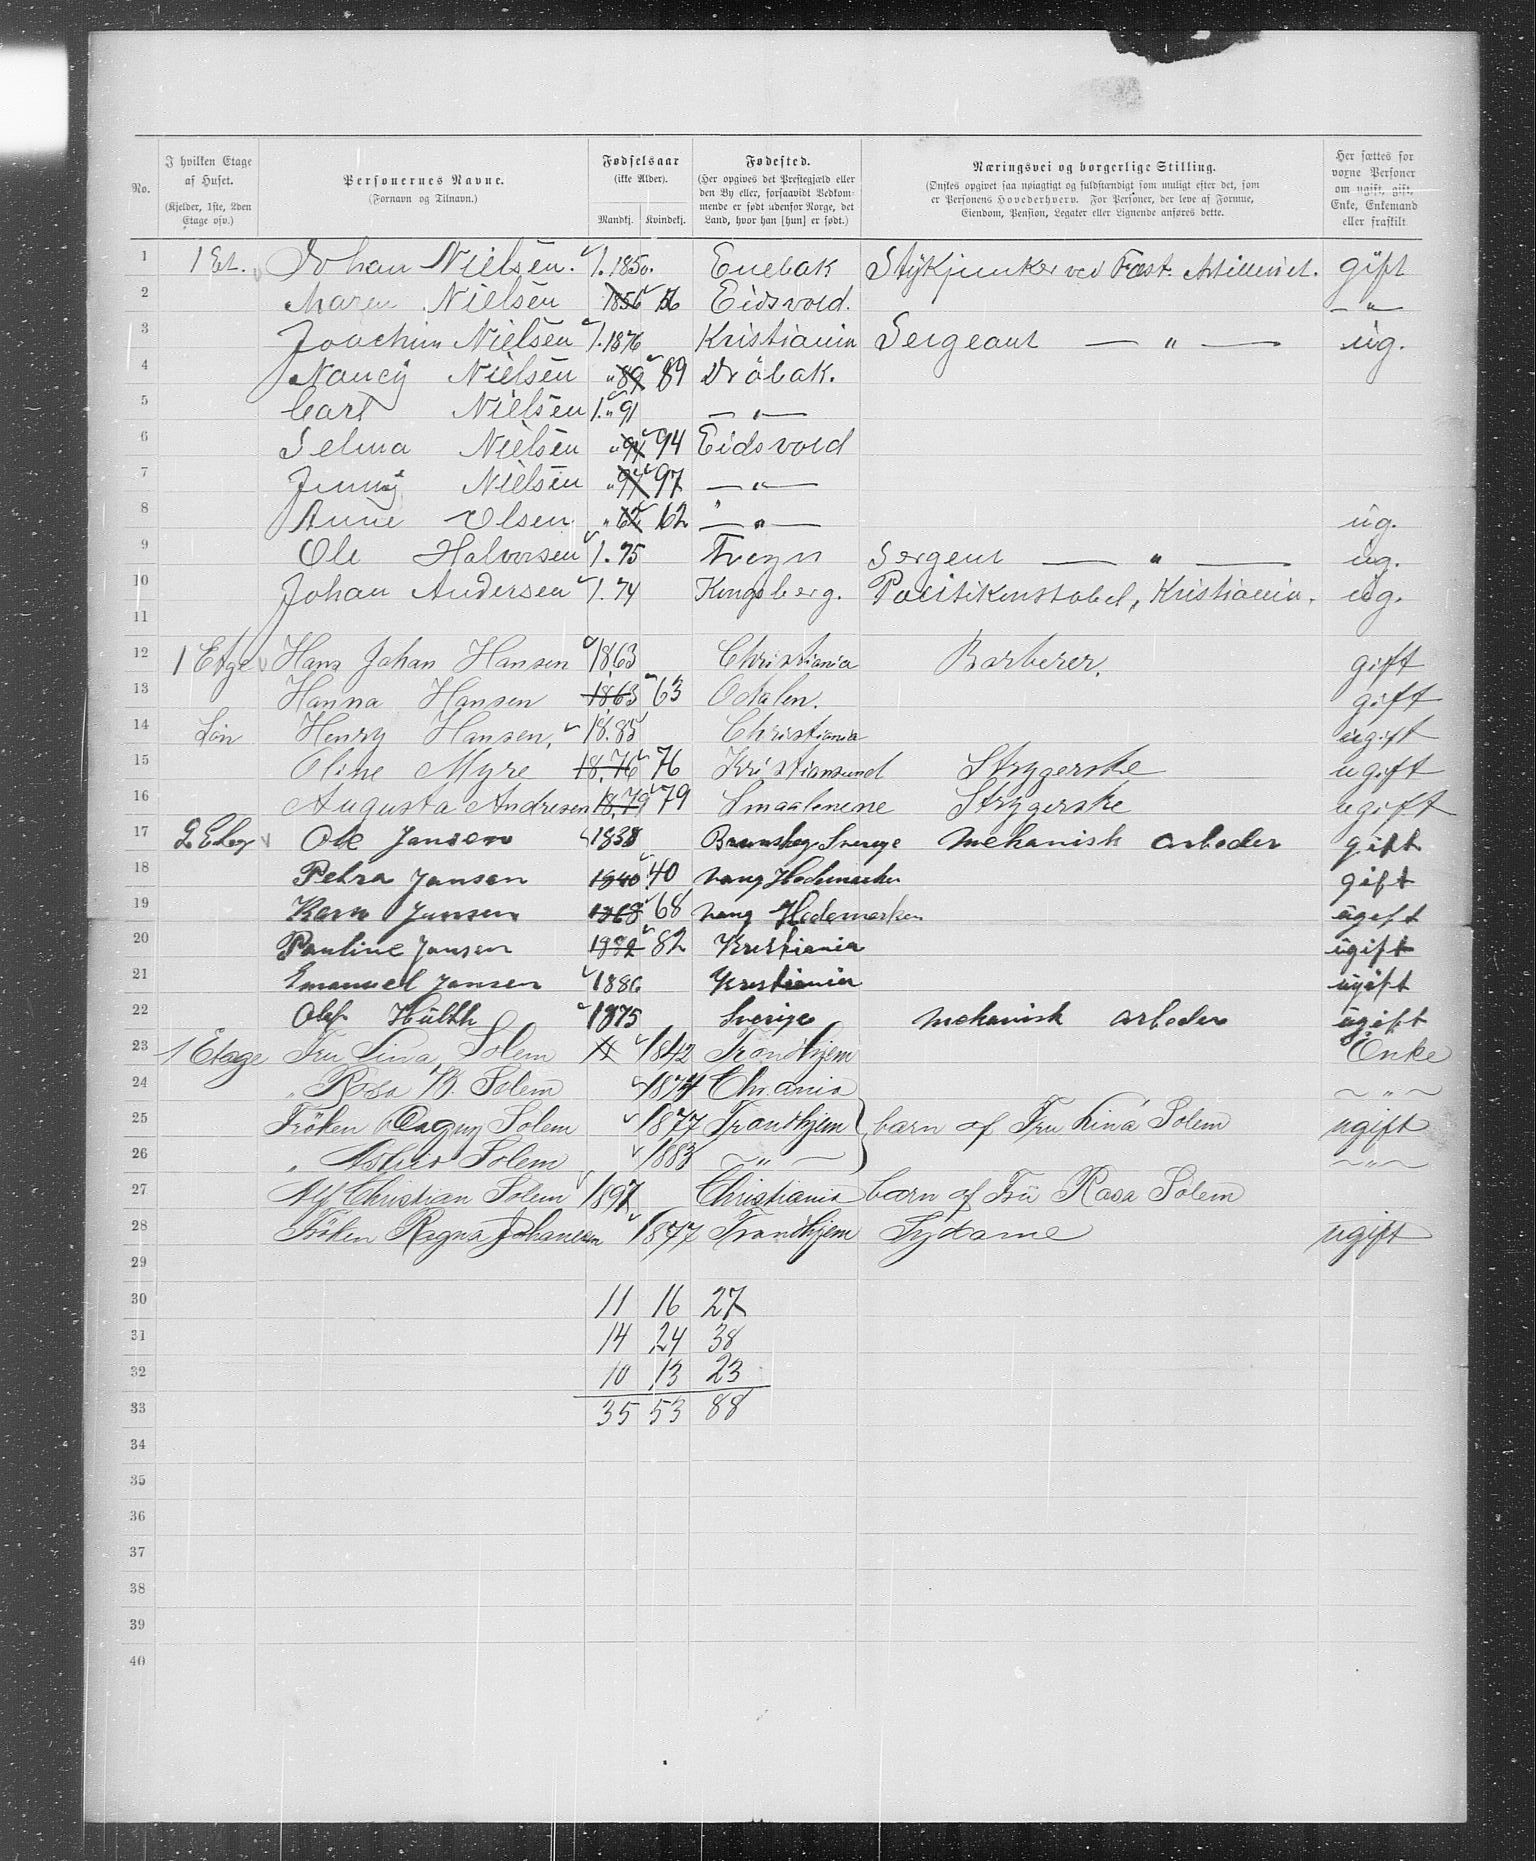 No. I hvilken Etage af Huset. (Kjelder, 1ste, 2den Etage osv.) Personernes Navne. (Fornavn og Tilnavn.) Fødselsaar (ikke Alder). Mandkj. Kvindekj. Fødested. (Her opgives det Prestegjæld eller den By eller, forsaavidt Vedkommende er født udenfor Norge, det Land, hvor han [hun] er født.) Næringsvei og borgerlige Stilling. (Ønskes opgivet saa nøiagtigt og fuldstændigt som muligt efter det, som er Personens Hovederhverv. For Personer, der leve af Formue, Eiendom, Pension, Legater eller Lignende anføres dette. Her sættes for voxne Personer om ugift, gift, Enke, Enkemand eller fraskilt
1 1 Et. Johan Nielsen. 1. 1850. Enebak Stykjunker ved Fæst. Artilleriet. gift
2 Maren Nielsen 1856 56 Eidsvold. — " —
3 Joachim Nielsen 1. 1876 Kristiania Sergeant — " — ug.
4 Nancy Nielsen " 89 89 Drøbak.
5 Carl Nielsen 1. " 91 — " —
6 Selma Nielsen " 94 94 Eidsvold
7 Jenny Nielsen " 97 97 — " —
8 Anne Olsen " 62 62 — " — ug.
9 Ole Halvorsen 1. 75 Sergent — " — ug.
10 Johan Andersen 1. 74 Kongsberg. Politikonstabel, Kristiania. ug.
11
12 1 Etge Hans Johan Hansen 1863 Christiania Barberer. gift
13 Hanna Hansen 1863 63 Odalen. gift
14 Søn Henry Hansen. 18.85 Christiania ugift
15 Oline Myre 18.76 76 Kristiansund Strygerske ugift
16 Augusta Andresen 18.79 79 Smaalenene Strygerske ugift
17 2 Etag Ole Jansen 1838 Sverige Mekanisk arbeder gift
18 Petra Jansen 1840 40 vang Hedemarken gift
19 Karn Jansen 1868 68 vang Hedemarken ugift
20 Pauline Jansen 1882 82 Kristiania ugift
21 Emanuel Jansen 1886 Kristiania ugift
22 Olaf Hülth 1875 Sverige Mekanisk arbeder ugift
23 1 Etage Fru Lina Solem 1842 Trondhjem Enke
24 " Rosa B. Solem 1874 Chr.ania — " —
25 Frøken Dagny Solem 1877 Trondhjem } barn af Fru Lina Solem ugift
26 " Solem 1883 — " — — " —
27 Alf Christian Solem 1897 Christiania barn af Fru Rosa Solem
28 Frøken Ragna Johansen 1877 Trondhjem Sydame ugift
29
30 11 16 27
31 14 24 38
32 10 13 23
33 35 53 88
34
35
36
37
38
39
40